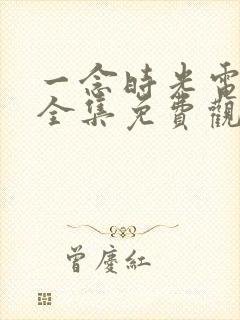 一念時光電
全集免費觀
曾慶紅